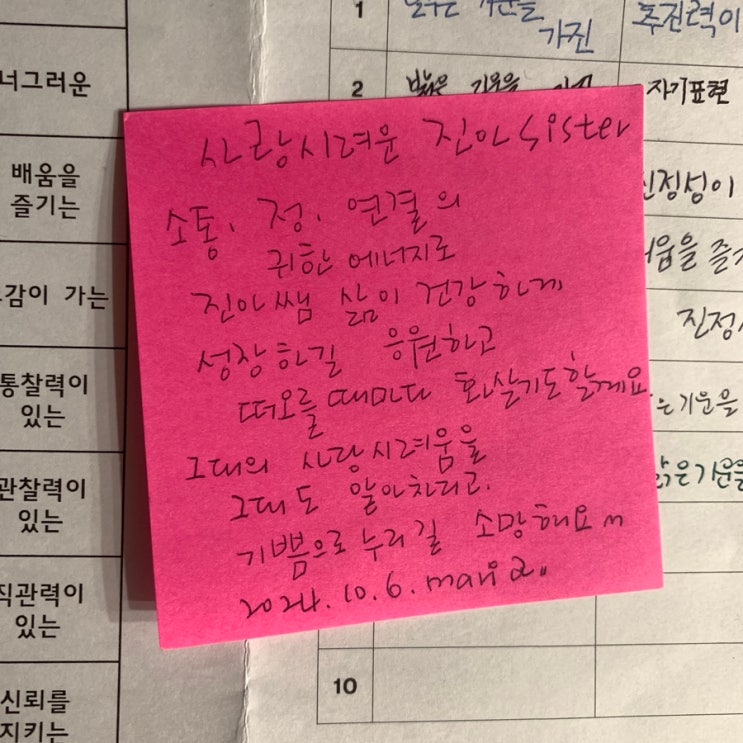 너그러운
배움을
즐기는
감이 가는
통찰력이
있는
관찰력이
있는
직관력이
있는
신뢰를
지키는
1
가진
추진력이
2
밝은 기운을
자기표현
사랑시려운 진아 sister
소통, 정, 연결의
귀한 에너지로
진아쌤 삶이 건강하게
성장하길 응원하고
떠오를 때마다 화살기도할게요.
그대의 사랑시려움을
그대도 알아차리고,
기쁨으로 누리길 소망해요~
2024.10.6. maria..
진정
은 기운을
맑은 기운을
10